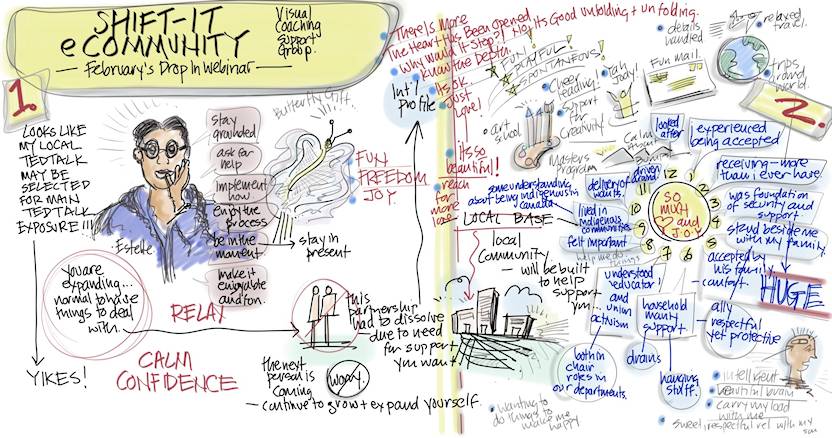 SHIFT-IT
eCOMMUNITY
February's Drop In Webinar
Visual
Coaching
Support
Group.
1.
LOOKS LIKE
MY LOCAL
TEDTALK
MAY BE
SELECTED
FOR MAIN
TEDTALK
EXPOSURE!!!
YIKES!
Estelle
stay
grounded
ask for
help
implement
how
enjoy the
process
be in the
moment
make it
enjoyable
and fun.
Butterfly Gift.
stay in
present
FUN
FREEDOM
JOY
you are
expanding...
normal to have
things to deal
with.
RELAX
CALM
CONFIDENCE
this
partnership
had to dissolve
due to need
for support
you want
the next
person is
coming
WORRY.
- continue to grow + expand yourself.
Int'l
Profile
There is More
The Heart Has Been Opened
Why Would it Stop? No, its Good unfolding + unfolding.
Know the Depth.
Its OK
Just
Love!
its so
beautiful!
reach
for more
love
FUN!
PLAYFUL!
SPONTANEOUS!
Cheer
leading!
support
for
Creativity!
art
school
Masters
Program
details
handled
Fun mail.
relaxed
travel.
trips
around
world.
2.
LOCAL BASE
local
Community
- will be built
to help
support
you...
wanting to
do things to
make me
happy
SO
MUCH
and
JOY
12
1
2
3
4
5
6
7
8
9
10
11
looked
after
experienced
being accepted
receiving - more
than i ever have
was foundation
of security and
support
stand beside me
with my family.
accepted by
his family.
comfort.
HUGE
ally
respectful
yet protective
household
maint
support
drains
hanging
stuff.
understood
educator
and union
activism
both in
chair
roles in
our departments.
felt important
lived in
indigenous
communities
some understanding
about being indigenous in
Canada
delivery of
wants.
driven around
intelligent
beautiful brain
carry my load
with me
sweet respectful rel with my
son